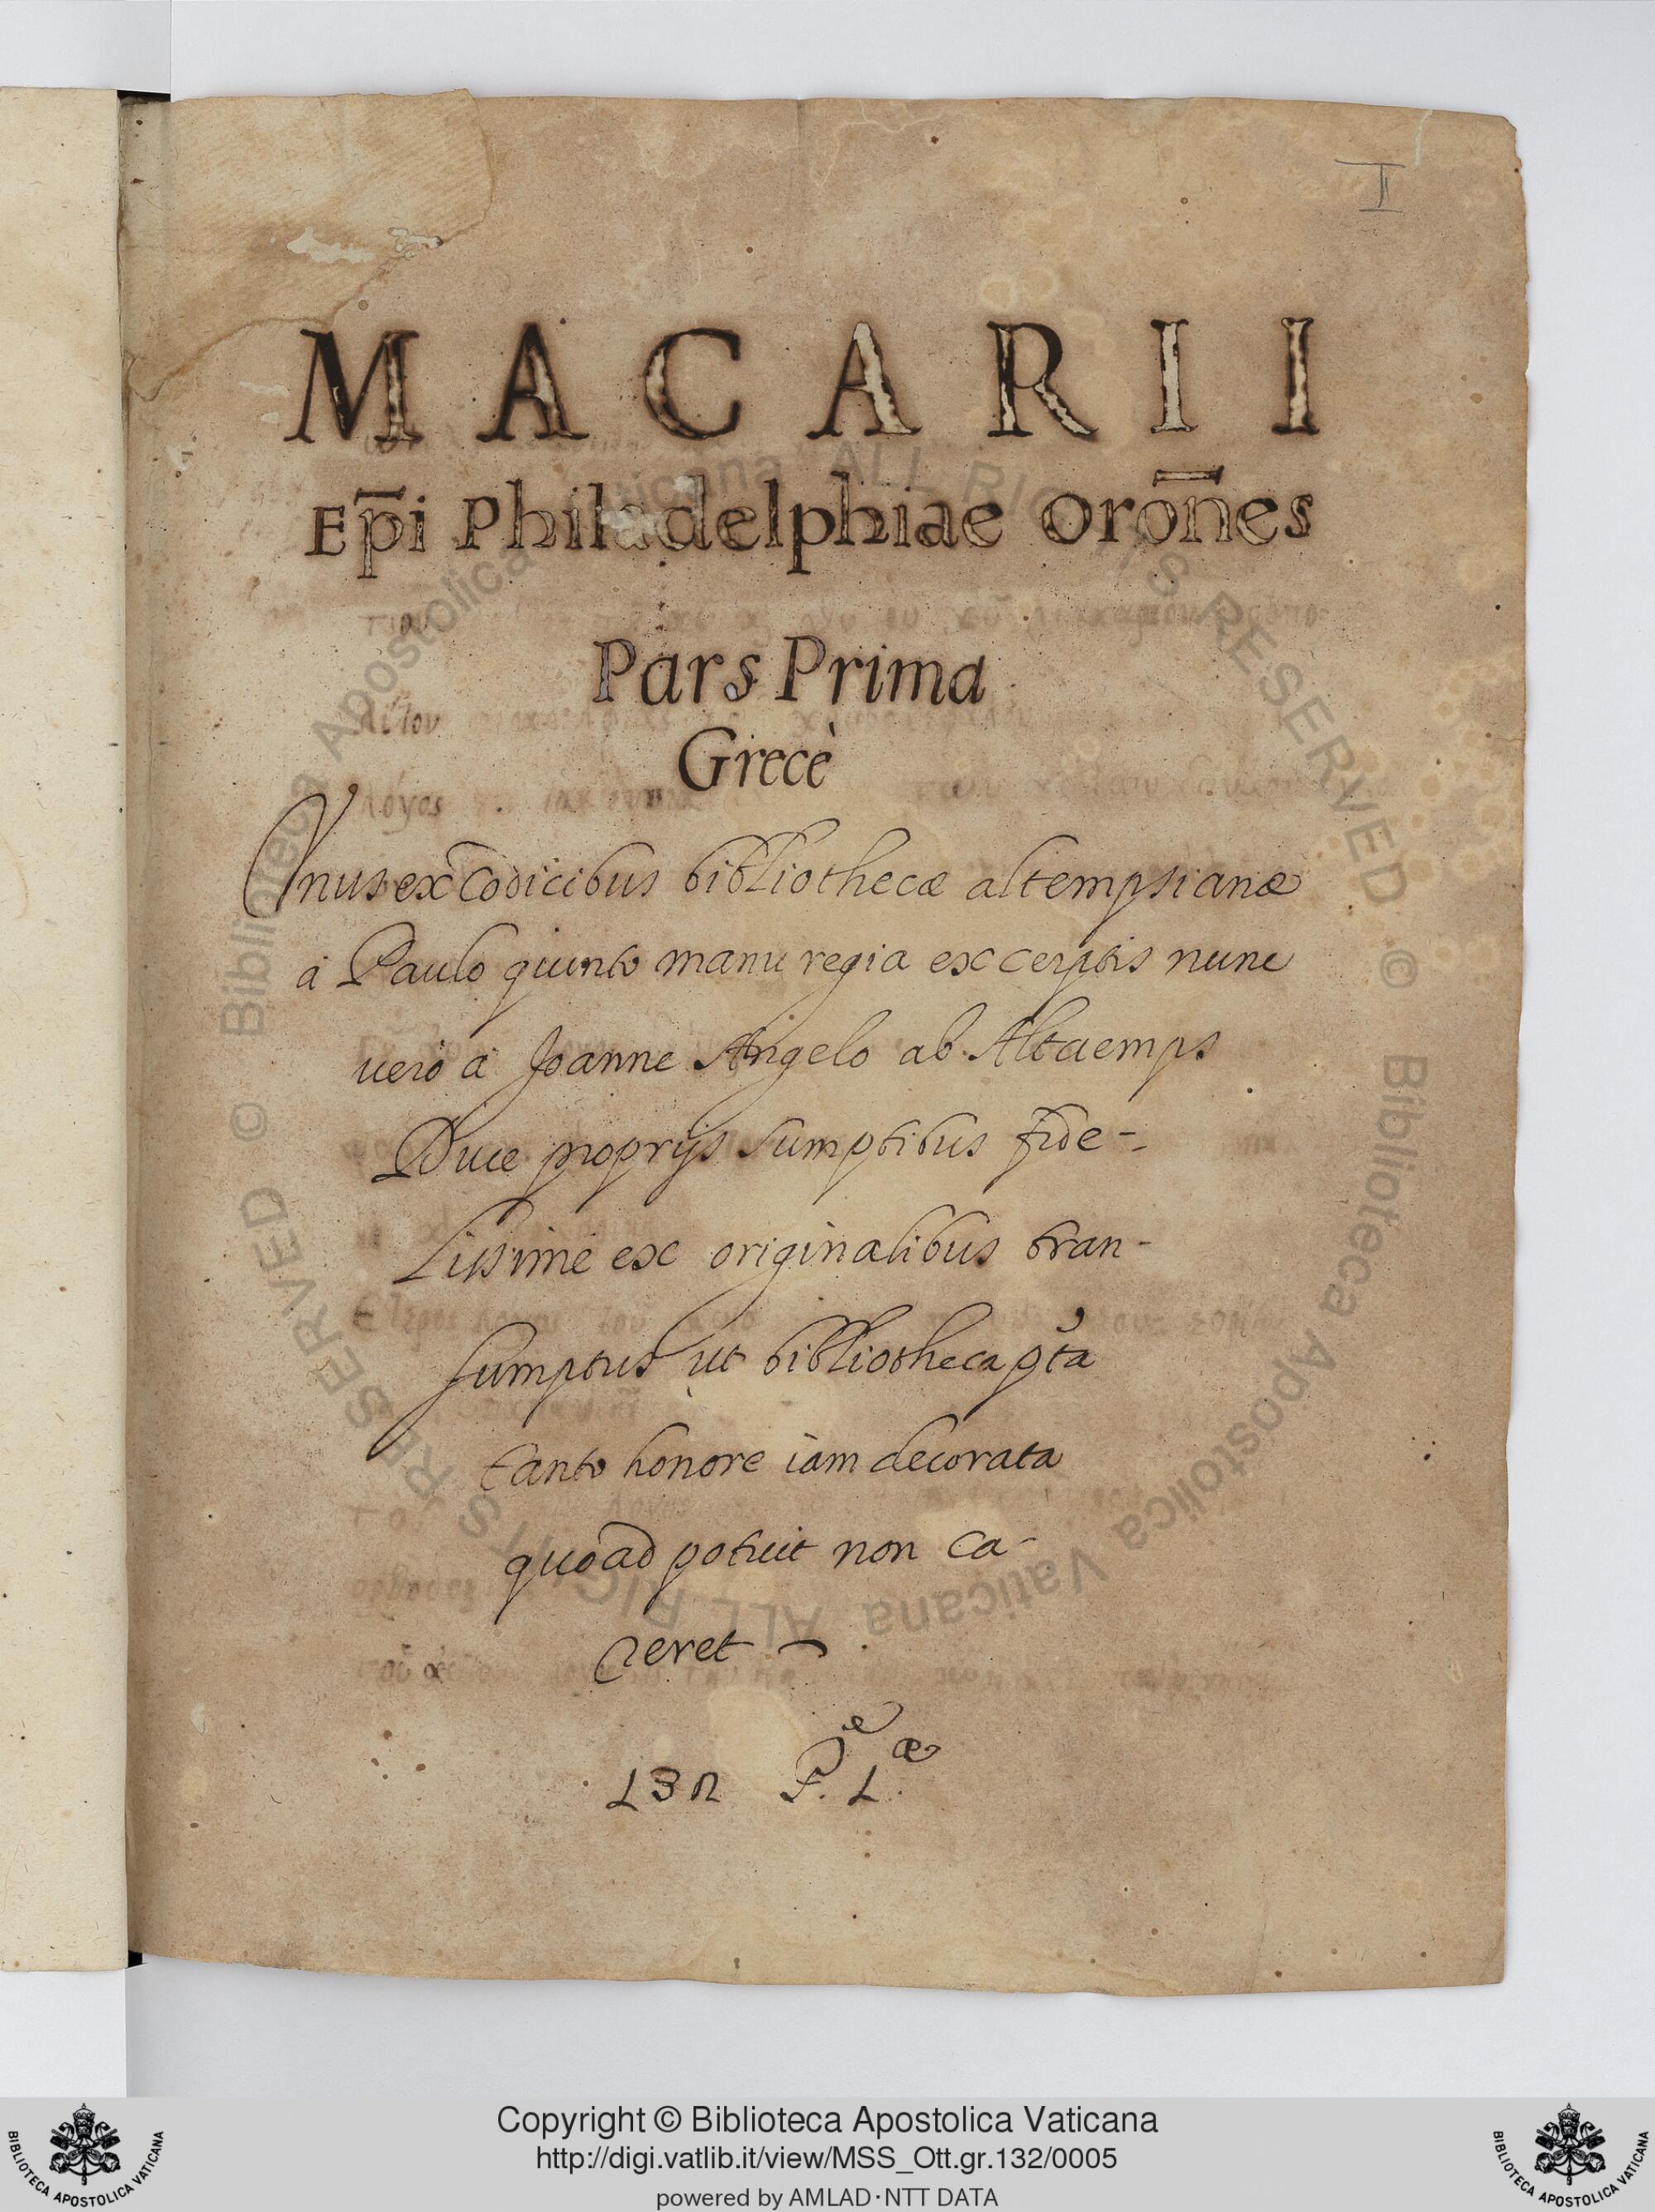 I
MACARII
Ep̄i Philadelphiae Orōn̄es
Pars Prima
Grecè
Vnus ex Codicibus bibliothecæ altempsianæ
à Paulo quinto manu regia excerptis nunc
uerò à Joanne Angelo ab Altaemps
Duce proprijs sumptibus fide-
lissimè ex originalibus tran-
sumptus ut bibliotheca
tanto honore iam decorata
quoad potuit non ca-
reret
P.e L.æ
Copyright © Biblioteca Apostolica Vaticana
http://digi.vatlib.it/view/MSS_Ott.gr.132/0005
powered by AMLAD·NTT DATA
BIBLIOTECA APOSTOLICA VATICANA
BIBLIOTECA APOSTOLICA VATICANA
© Biblioteca Apostolica Vaticana ALL RIGHTS RESERVED
© Biblioteca Apostolica Vaticana ALL RIGHTS RESERVED